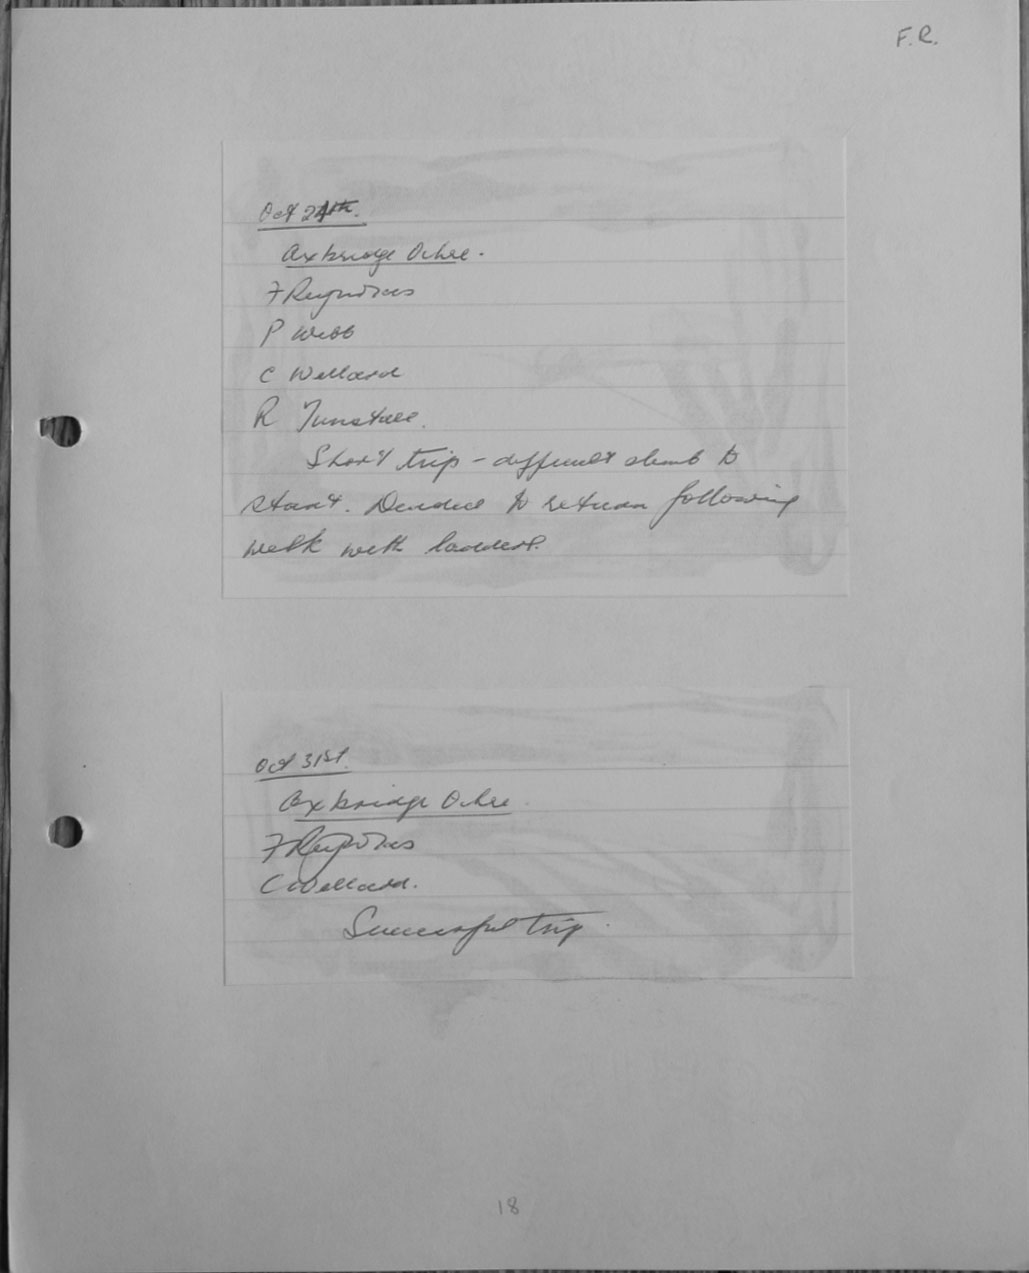 F.R.
Oct 24th.
Axbridge Ochre.
F Reynolds
P Webb
C Wellard
R Tunstall.
Short trip - difficult climb to
start. Decided to return following
week with ladders.
Oct 31st.
Axbridge Ochre.
F Reynolds
C Wellard.
Successful trip.
18